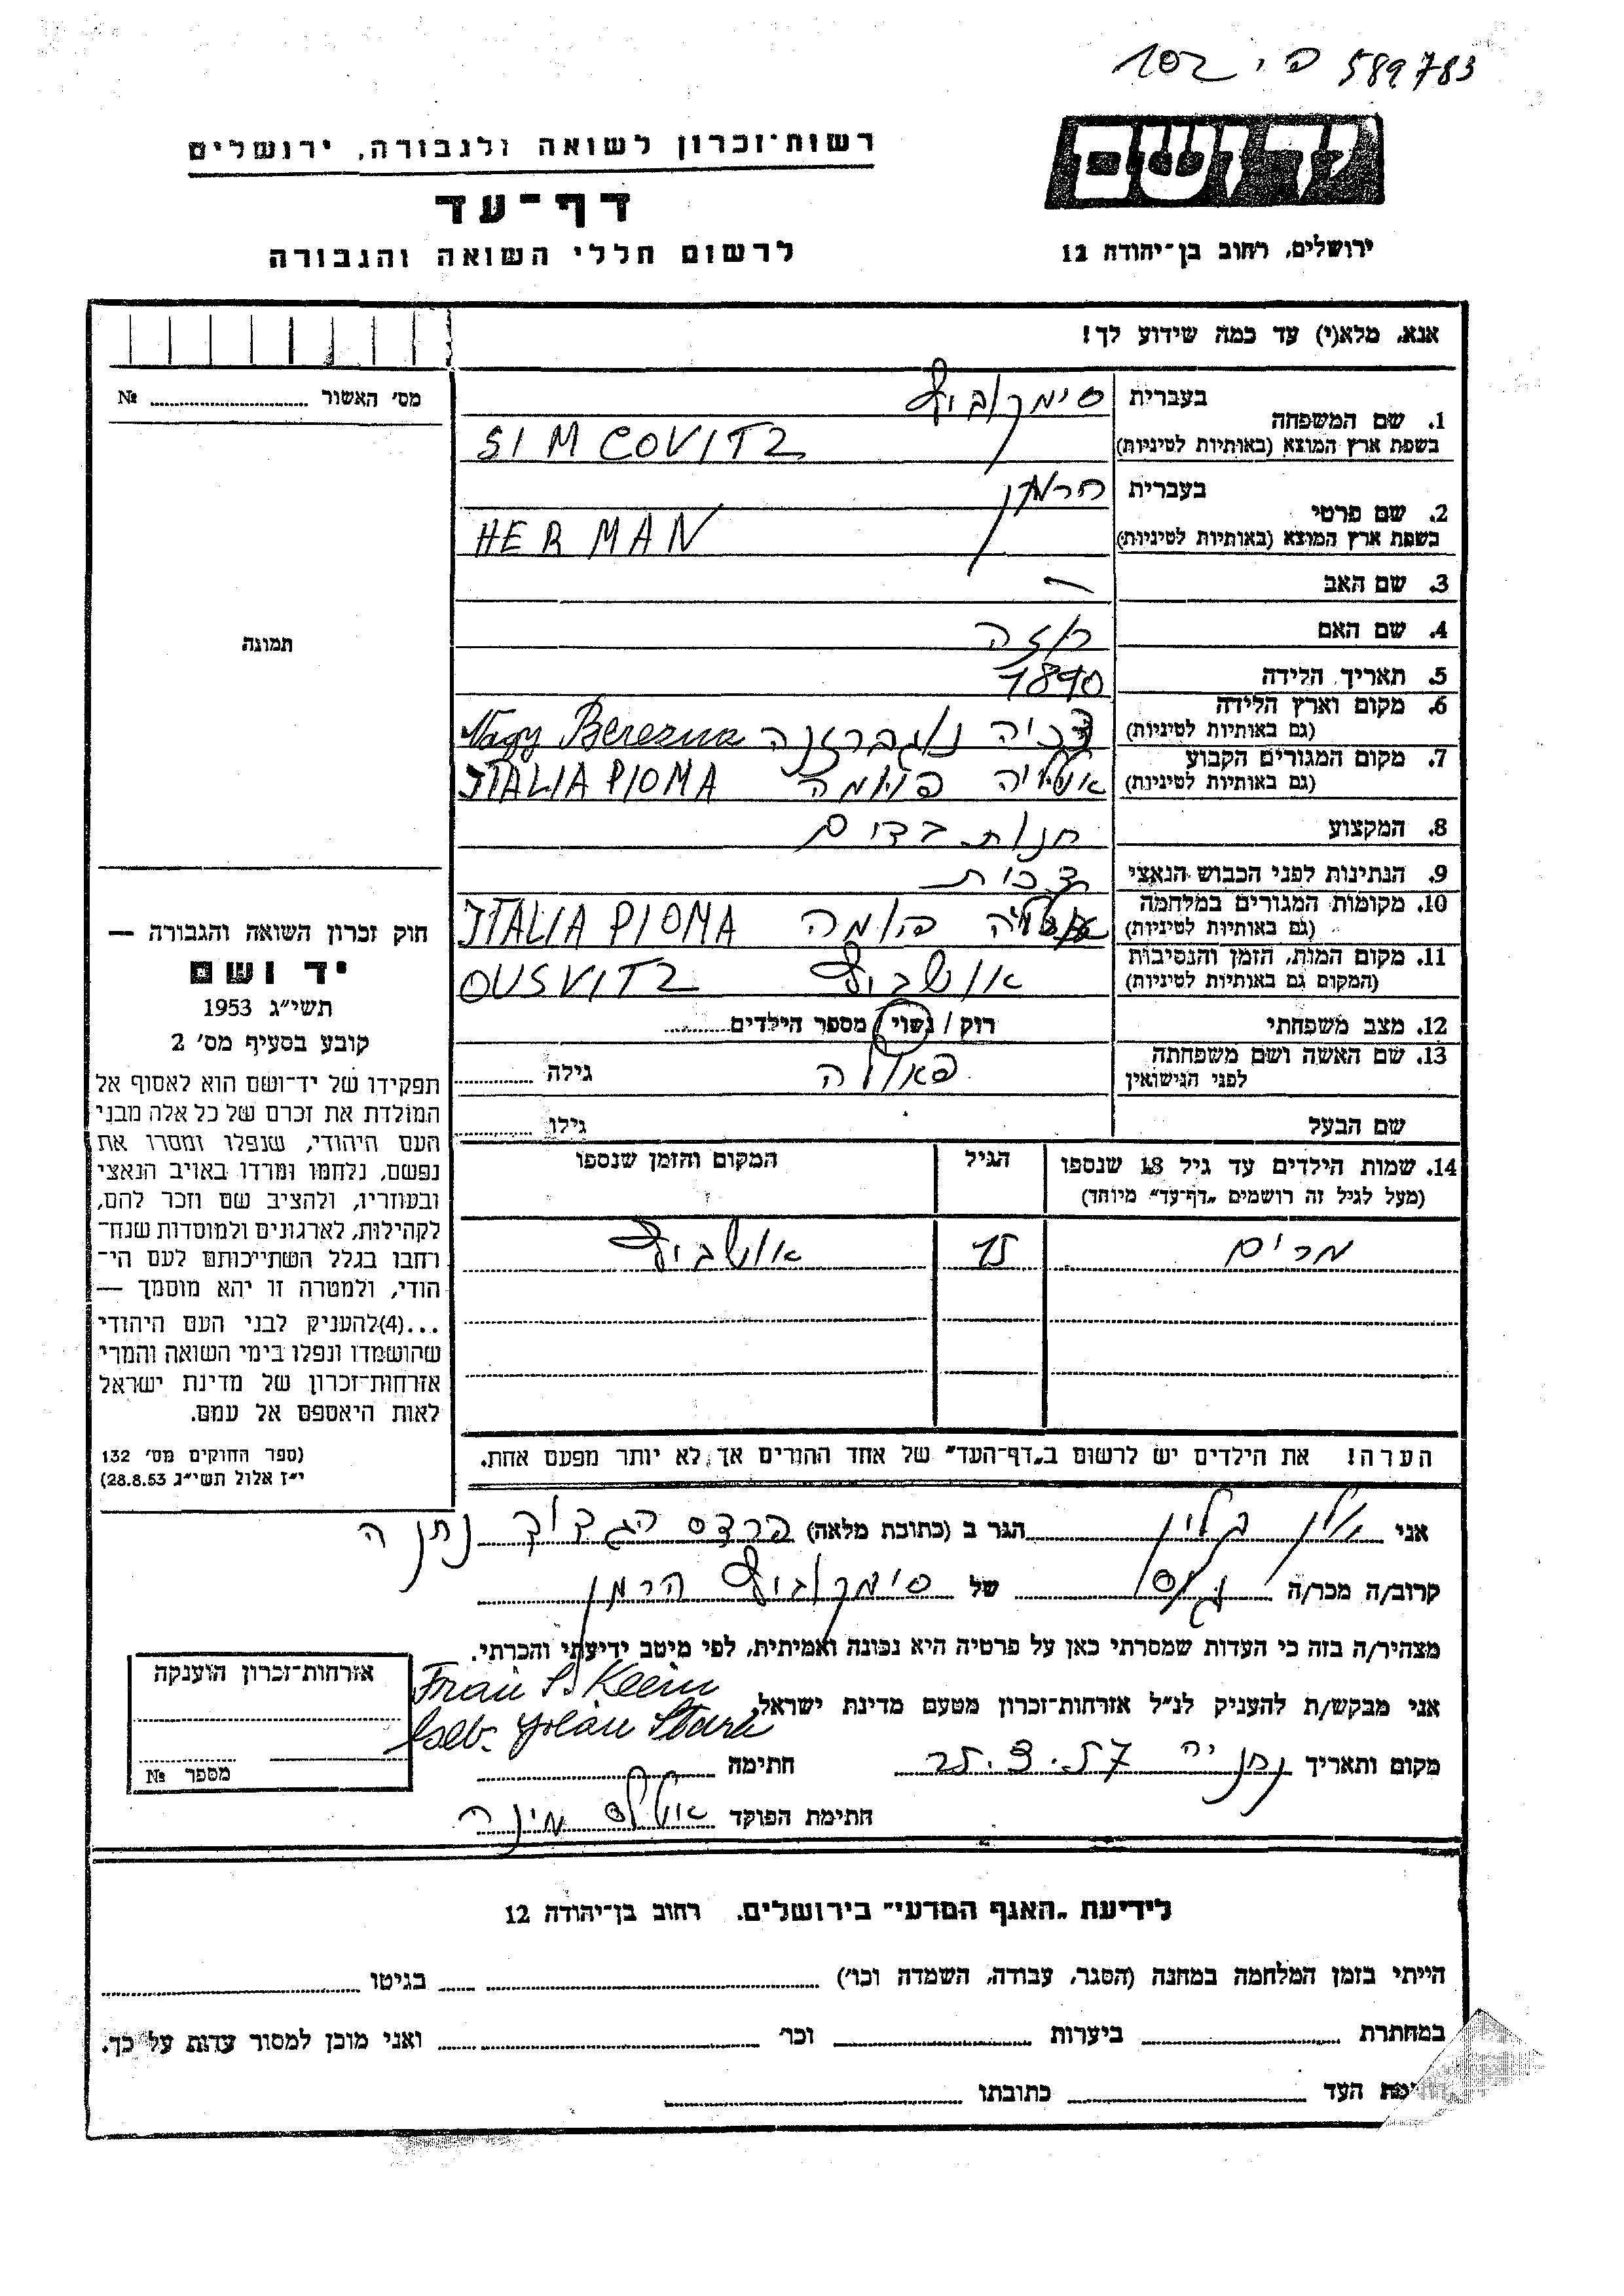 589783 פ י 102
יד ושם
רשות-זכרון לשואה ולגבורה, ירושלים
דף-עד
לרשום חללי השואה והגבורה
ירושלים, רחוב בן-יהודה 12
אנא, מלא(י) עד כמה שידוע לך!
מס' האשור № ........
1. שם המשפחה
בעברית סימקוביץ
בשפת ארץ המוצא (באותיות לטיניות) SIMCOVITZ
2. שם פרטי
בעברית הרמן
בשפת ארץ המוצא (באותיות לטיניות) HERMAN
3. שם האב —
4. שם האם רוזה
5. תאריך הלידה 1890
6. מקום וארץ הלידה צכיה נגברזנה Nagy Berezna
(גם באותיות לטיניות)
7. מקום המגורים הקבוע איטליה פיומה ITALIA PIOMA
(גם באותיות לטיניות)
8. המקצוע חנות בדים
9. הנתינות לפני הכבוש הנאצי צכית
10. מקומות המגורים במלחמה איטליה פיומה ITALIA PIOMA
(גם באותיות לטיניות)
11. מקום המות, הזמן והנסיבות אושביץ OUSVITZ
(המקום גם באותיות לטיניות)
12. מצב משפחתי רוק / נשוי / מספר הילדים........
13. שם האשה ושם משפחתה פאולה גילה ........
לפני הנישואין
שם הבעל גילו ........
14. שמות הילדים עד גיל 18 שנספו הגיל המקום והזמן שנספו
(מעל לגיל זה רושמים "דף-עד" מיוחד)
מרים 15 אושביץ
הערה! את הילדים יש לרשום ב"דף-העד" של אחד ההורים אך לא יותר מפעם אחת.
תמונה
חוק זכרון השואה והגבורה —
יד ושם
תשי"ג 1953
קובע בסעיף מס' 2
תפקידו של יד-ושם הוא לאסוף אל
המולדת את זכרם של כל אלה מבני
העם היהודי, שנפלו ומסרו את
נפשם, נלחמו ומרדו באויב הנאצי
ובעוזריו, ולהציב שם וזכר להם,
לקהילות, לארגונים ולמוסדות שנח-
רחבו בגלל השתייכותם לעם הי-
הודי, ולמטרה זו יהא מוסמך —
...(4)להעניק לבני העם היהודי
שהושמדו ונפלו בימי השואה והמרי
אזרחות-זכרון של מדינת ישראל
לאות היאספם אל עמם.
(ספר החוקים מס' 132
י"ז אלול תשי"ג 28.8.53)
אני קליין הגר ב (כתובת מלאה) פרדס הגדוד נתניה
קרוב/ה מכר/ה גיס של סימקוביץ הרמן
מצהיר/ה בזה כי העדות שמסרתי כאן על פרטיה היא נכונה ואמיתית, לפי מיטב ידיעתי והכרתי.
אני מבקש/ת להעניק לנ"ל אזרחות-זכרון מטעם מדינת ישראל,
Frau Klein
geb. Jolan
מקום ותאריך נתניה 25.3.57 חתימה
חתימת הפוקד מינה
אזרחות-זכרון הוענקה
מספר №
לידיעת "האגף המדעי" בירושלים. רחוב בן-יהודה 12
הייתי בזמן המלחמה במחנה (הסגר, עבודה, השמדה וכו') ........ בגיטו ........
במחתרת ........ ביערות ........ וכו' ........ ואני מוכן למסור עדות על כך.
חתימת העד ........ כתובתו ........